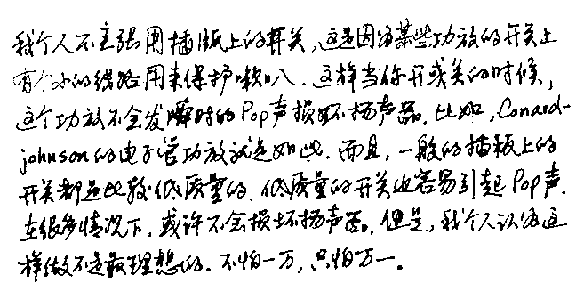 我个人不主张用插版上的开关,这是因为某些功放的开关上
有个小的线路用来保护喇叭.这样当你开或关的时候,
这个功放不会发瞬时的Pop声损坏扬声器.比如,Conard-
johnson的电子管功放就是如此.而且,一般的插板上的
开关都是比较低质量的.低质量的开关也容易引起Pop声.
在很多情况下,或许不会损坏扬声器.但是,我个人认为这
样做不是最理想的.不怕一万,只怕万一.